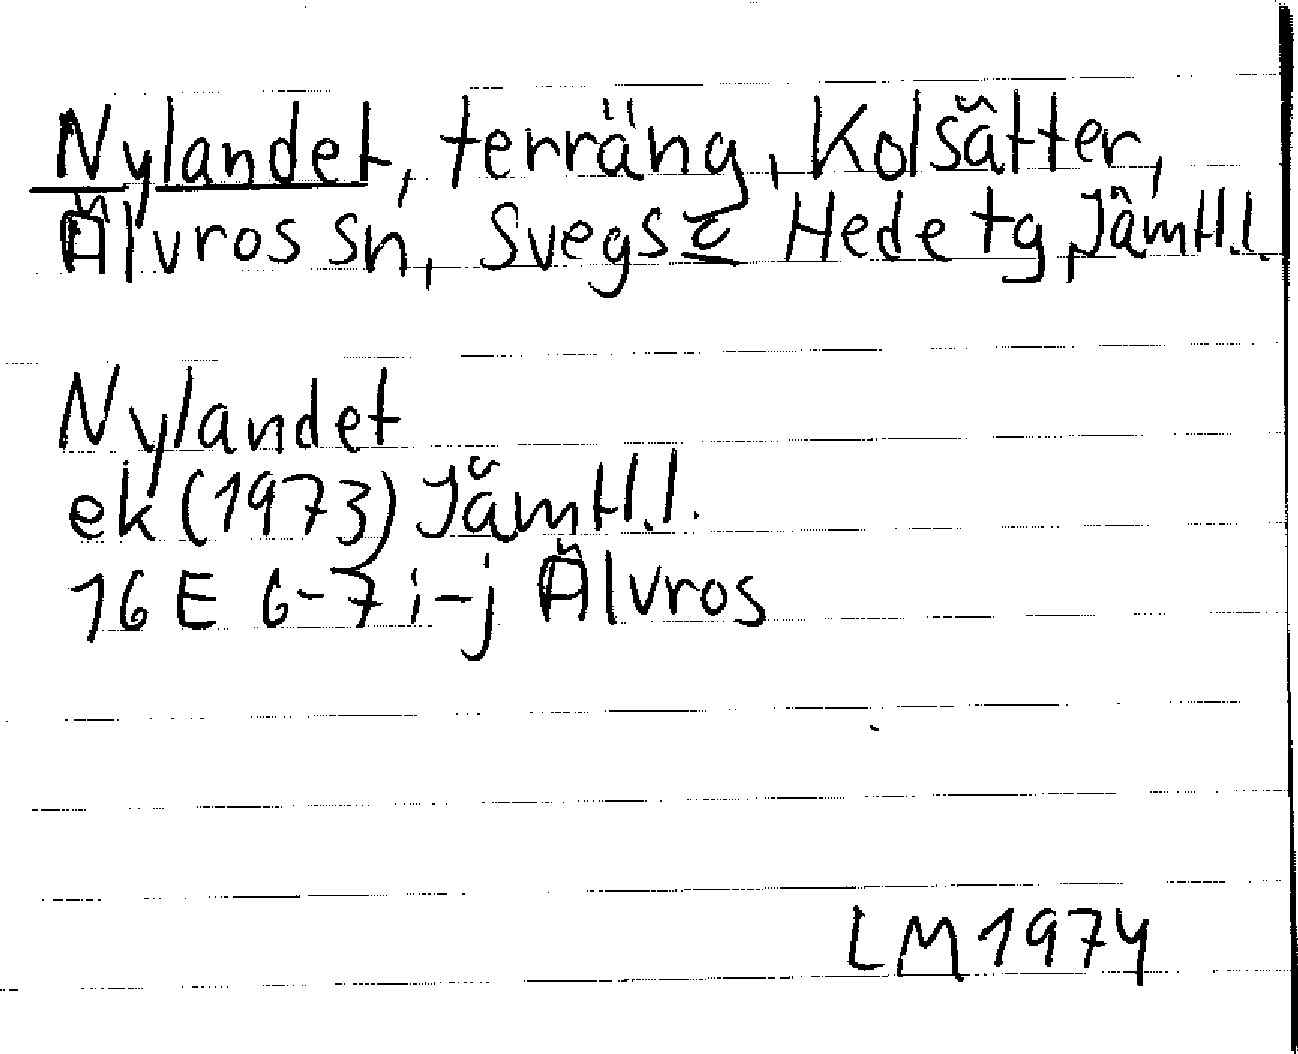 Nylandet, terräng, Kolsätter,
Älvros sn, Svegs o Hede tg, Jämtl.l.
Nylandet
ek (1973) Jämtl.l.
16 E 6-7 i-j Älvros
LM 1974